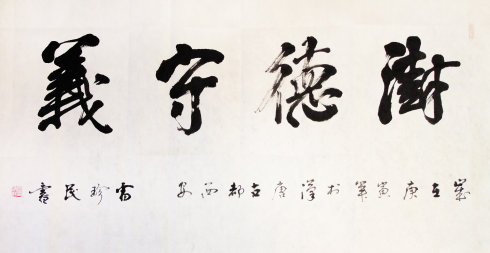 澍德守義
歲在庚寅於漢唐古都西安 雷珍民書